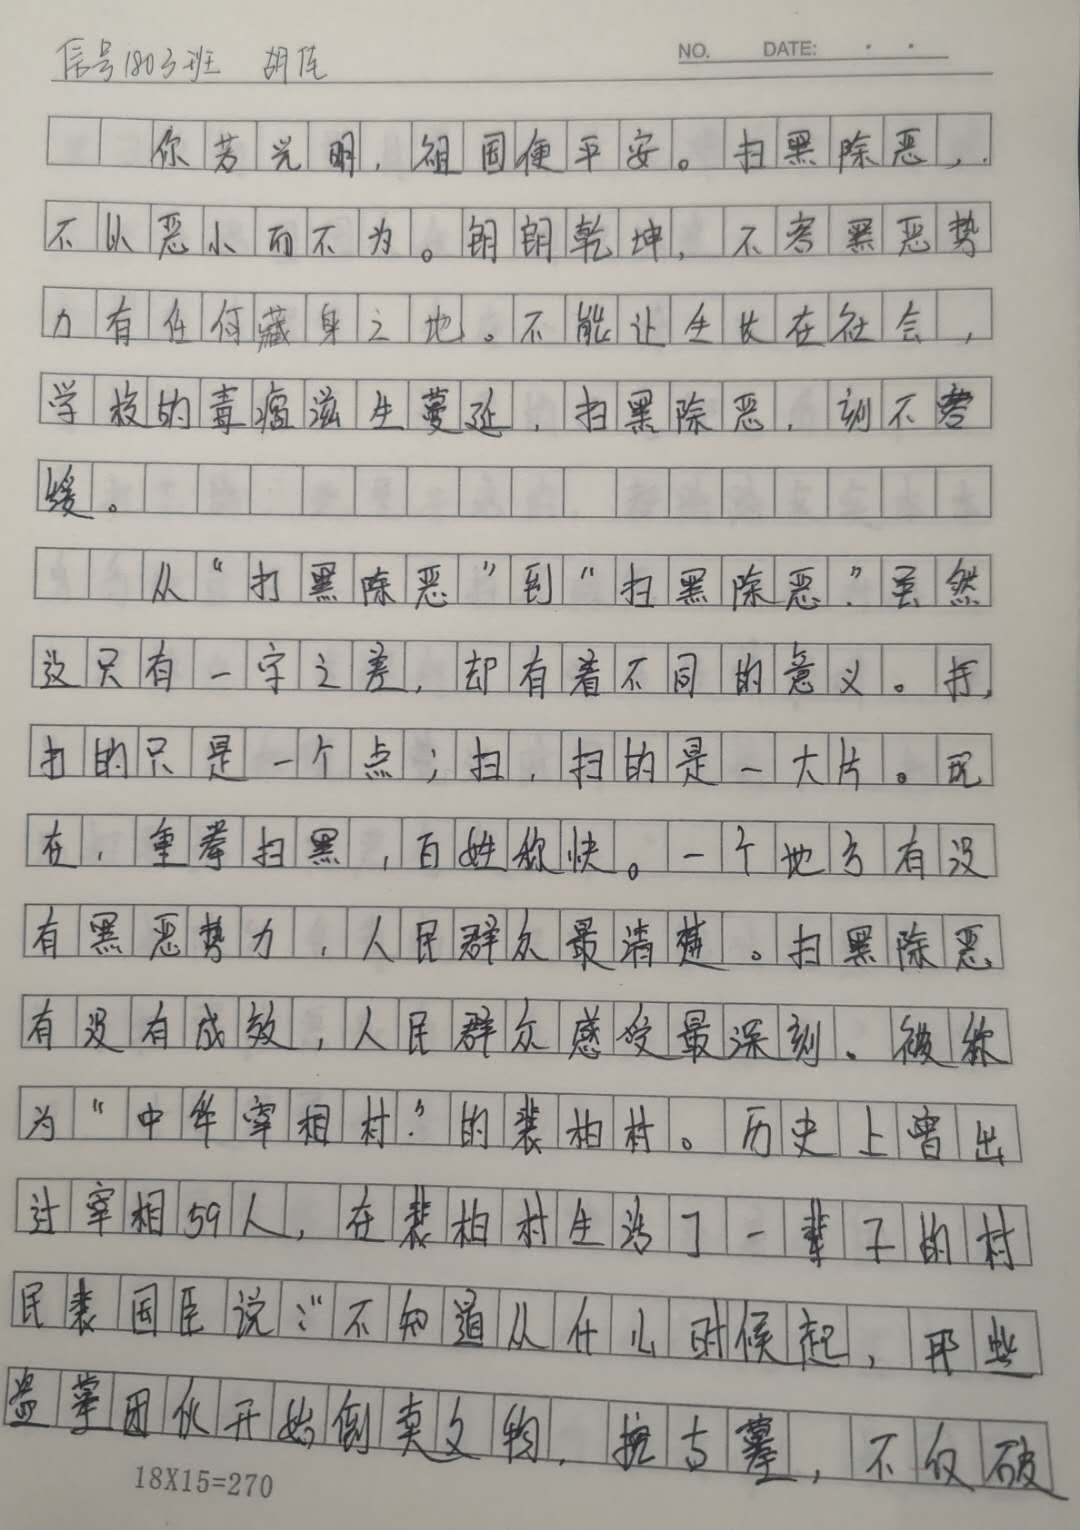 信号1803班 胡
NO. DATE: · ·
你若光明，祖国便平安。扫黑除恶，
不以恶小而不为。朗朗乾坤，不容黑恶势
力有任何藏身之地。不能让生长在社会，
学校的毒瘤滋生蔓延，扫黑除恶，刻不容
缓。
从“打黑除恶”到“扫黑除恶”虽然
这只有一字之差，却有着不同的意义。打，
打的只是一个点；扫，扫的是一大片。现
在，重拳扫黑，百姓称快。一个地方有没
有黑恶势力，人民群众最清楚。扫黑除恶
有没有成效，人民群众感受最深刻。被称
为“中华宰相村”的裴柏村。历史上曾出
过宰相59人，在裴柏村生活了一辈子的村
民裴国臣说：“不知道从什么时候起，那些
盗掌团伙开始倒卖文物，挖古墓，不仅破
18X15=270